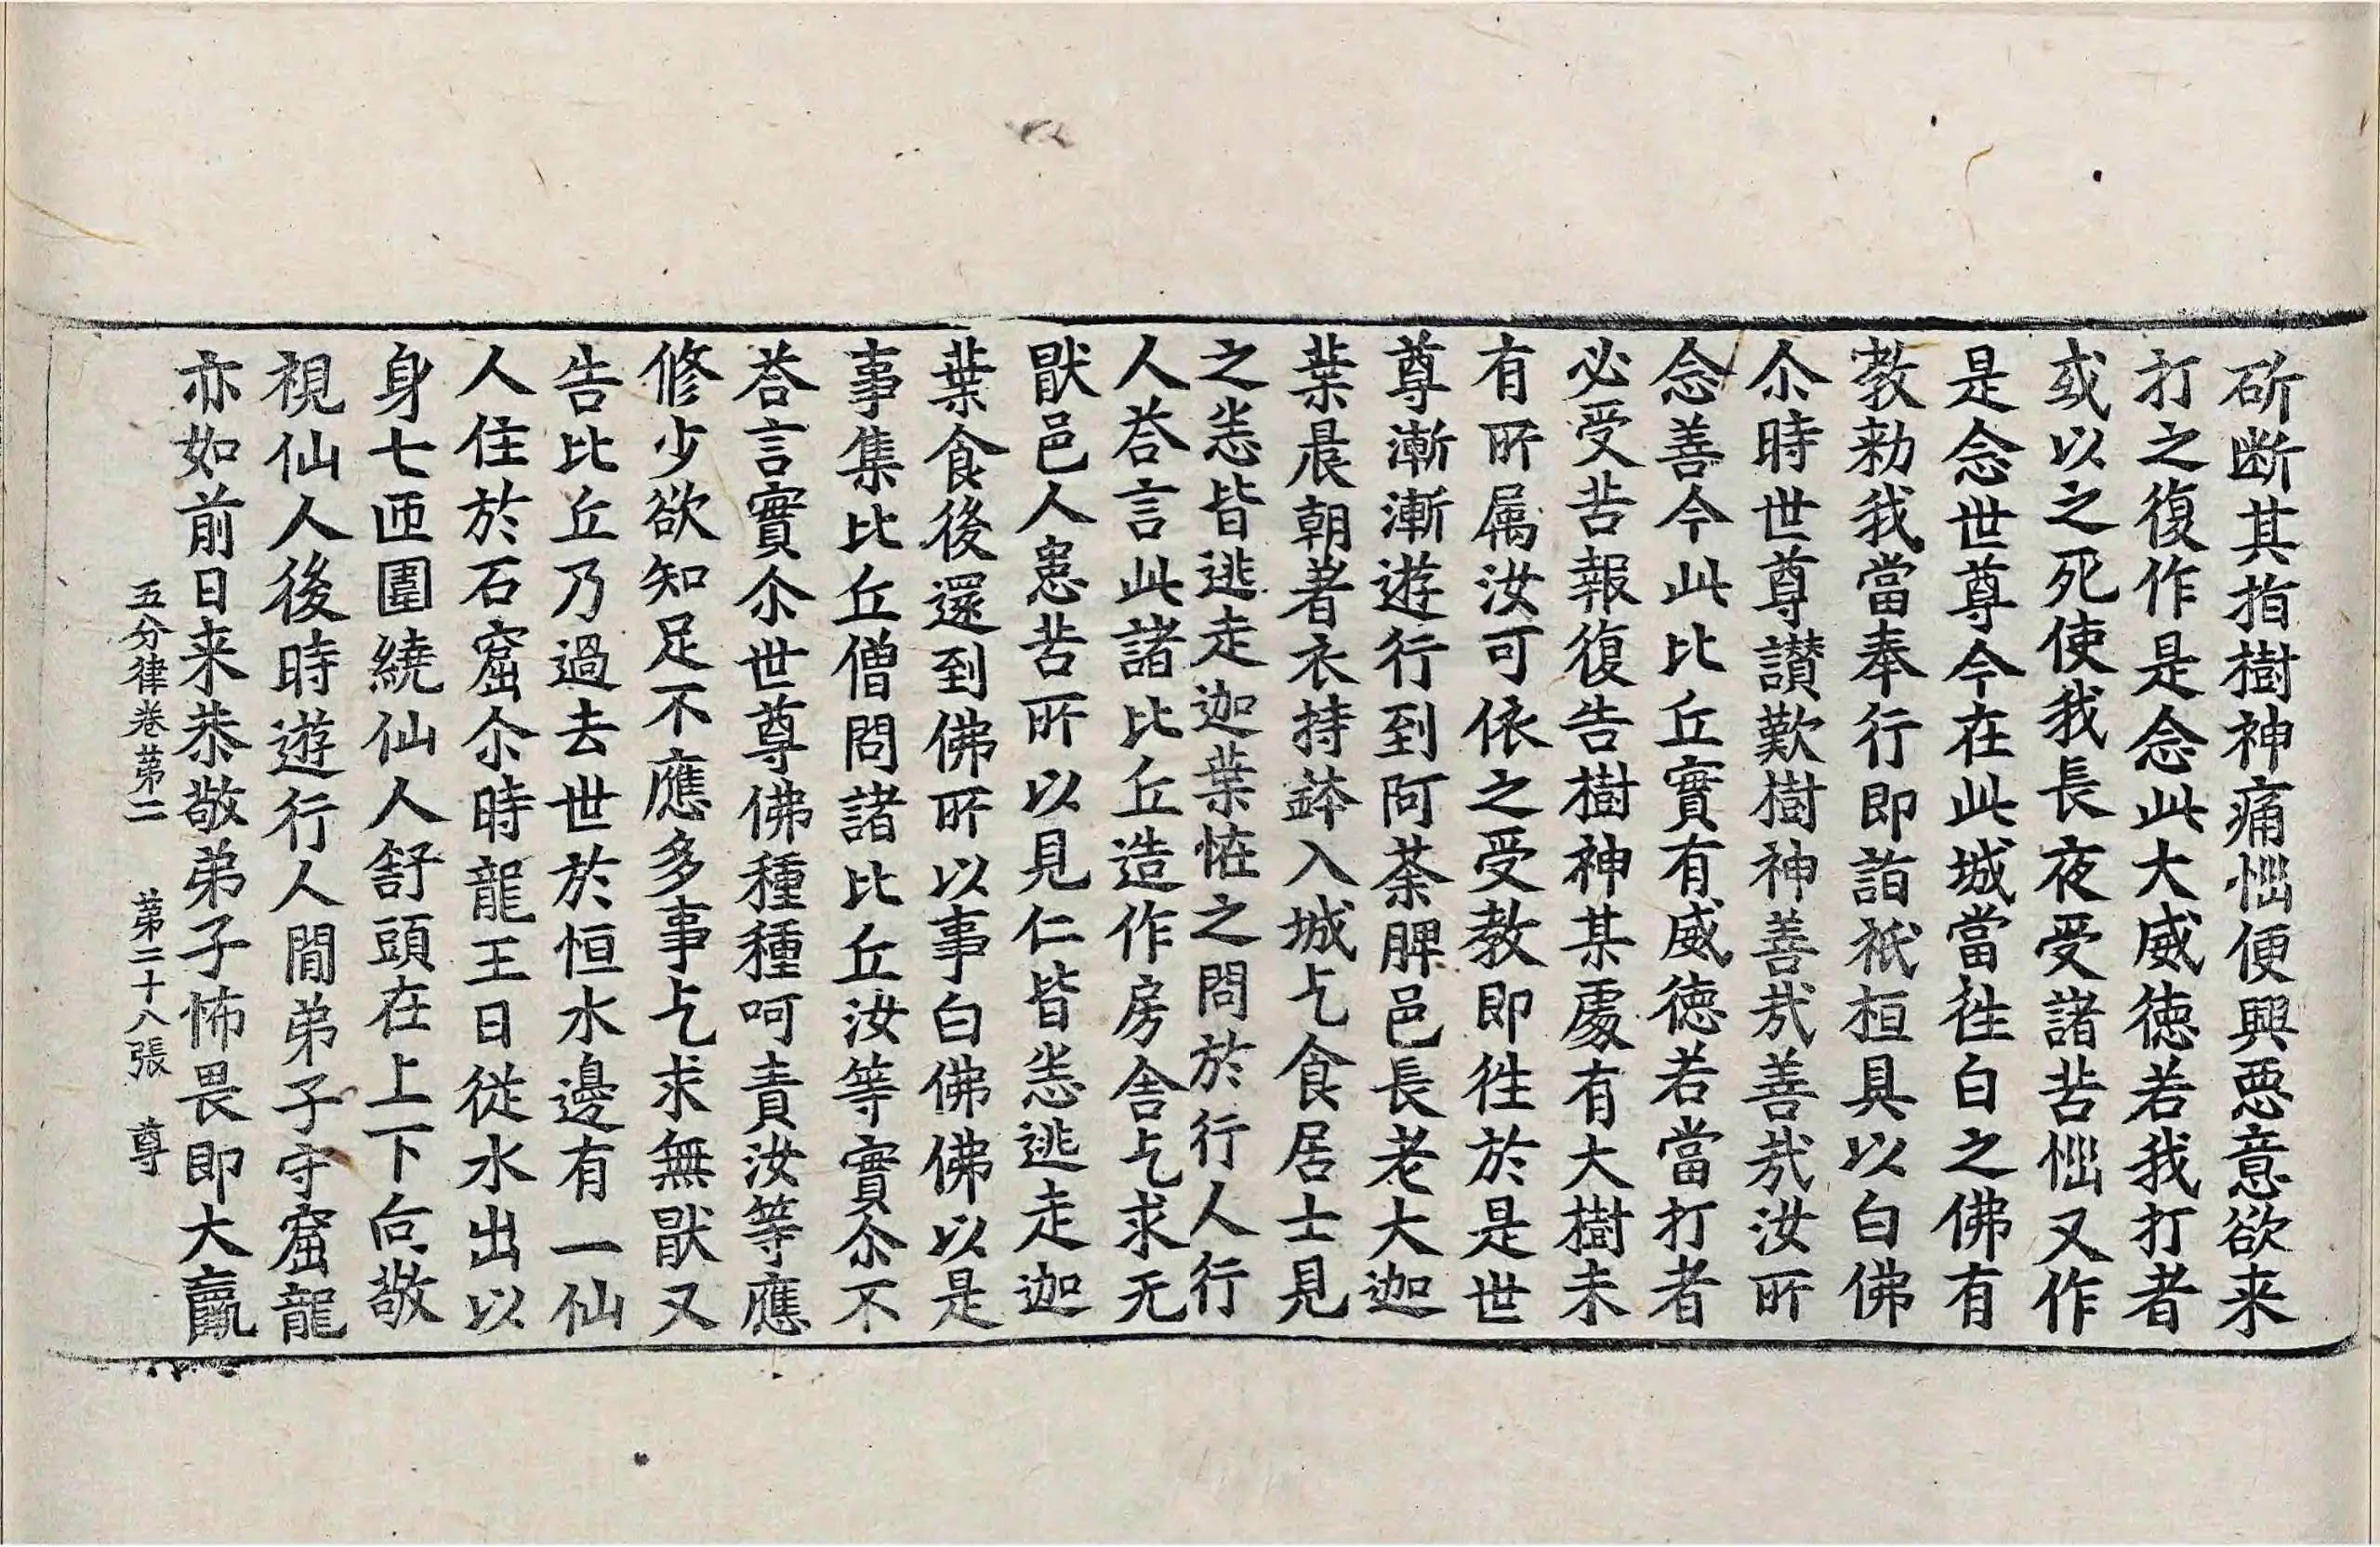 斫断其指樹神痛惱便興惡意欲来
打之復作是念此大威徳若我打者
或以之死使我長夜受諸苦惱又作
是念世尊今在此城當徃白之佛有
教勑我當奉行即詣祇桓具以白佛
尒時世尊讃歎樹神善㢤善㢤汝所
念善今此比丘實有威徳若當打者
必受苦報復告樹神某處有大樹未
有所属汝可依之受教即徃於是世
尊漸漸遊行到阿荼脾邑長老大迦
葉晨朝著衣持鉢入城乞食居士見
之恙皆逃走迦葉恠之問於行人行
人荅言此諸比丘造作房舎乞求无
猒邑人患苦所以見仁皆恙逃走迦
葉食後還到佛所以事白佛佛以是
事集比丘僧問諸比丘汝等實尒不
荅言實尒世尊佛種種呵責汝等應
修少欲知足不應多事乞求無猒又
告比丘乃過去世於恒水邊有一仙
人住於石窟尒時龍王日従水出以
身七匝圍繞仙人舒頭在上下向敬
視仙人後時遊行人間弟子守窟龍
亦如前日来恭敬弟子怖畏即大羸
五分律卷苐二　苐二十八張　尊